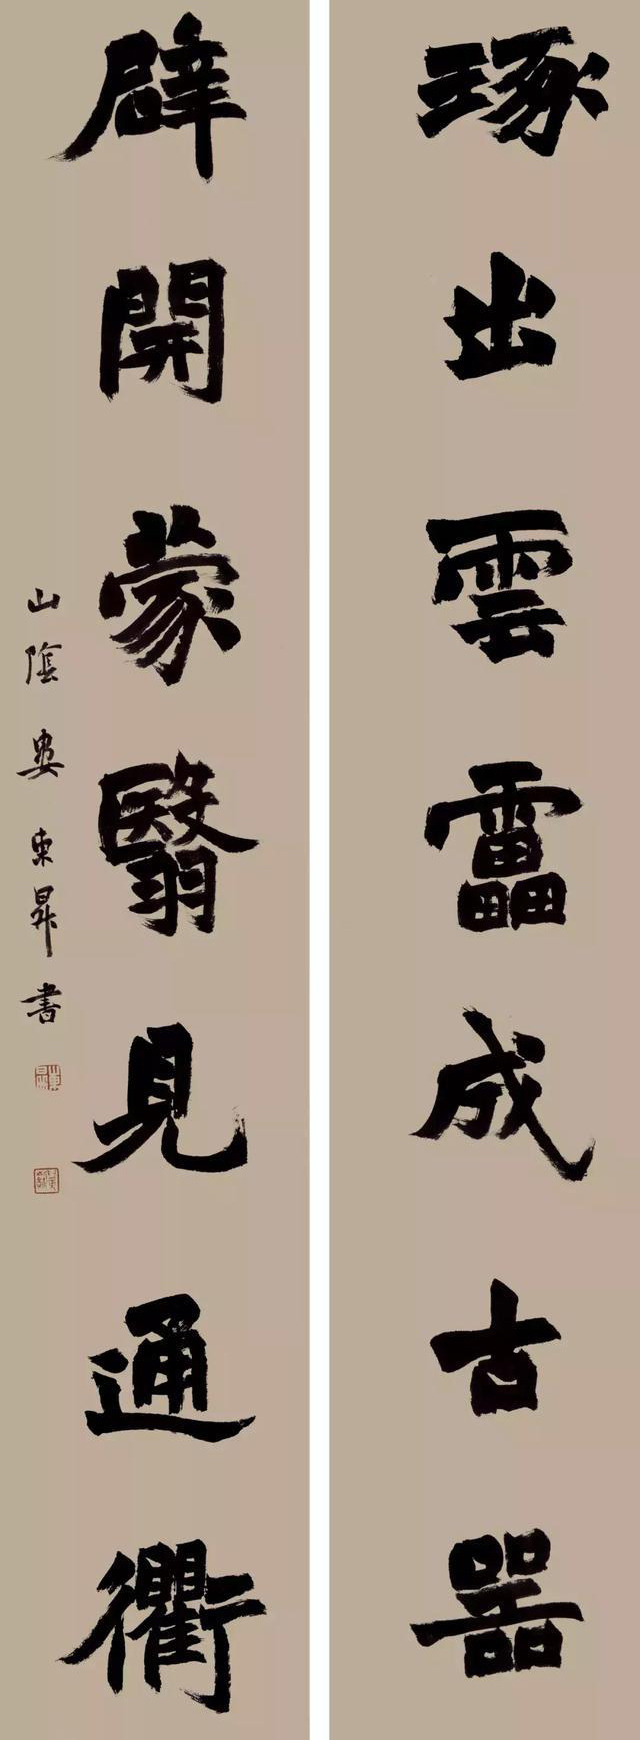 琢出雲靁成古器
辟開蒙翳見通衢
山陰婁東昇書